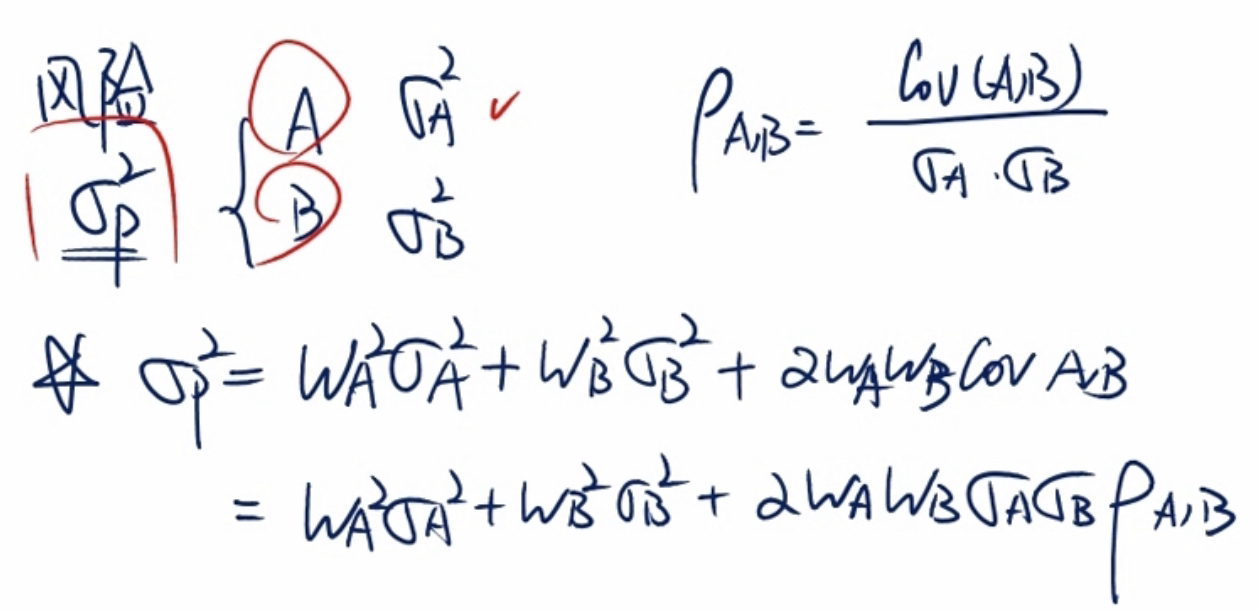 风险
σ_P^2 { A σ_A^2 ✓
B σ_B^2
ρ_{A,B} = Cov(A,B) / σ_A · σ_B
☆ σ_P^2 = W_A^2 σ_A^2 + W_B^2 σ_B^2 + 2 W_A W_B Cov A,B
= W_A^2 σ_A^2 + W_B^2 σ_B^2 + 2 W_A W_B σ_A σ_B ρ_{A,B}